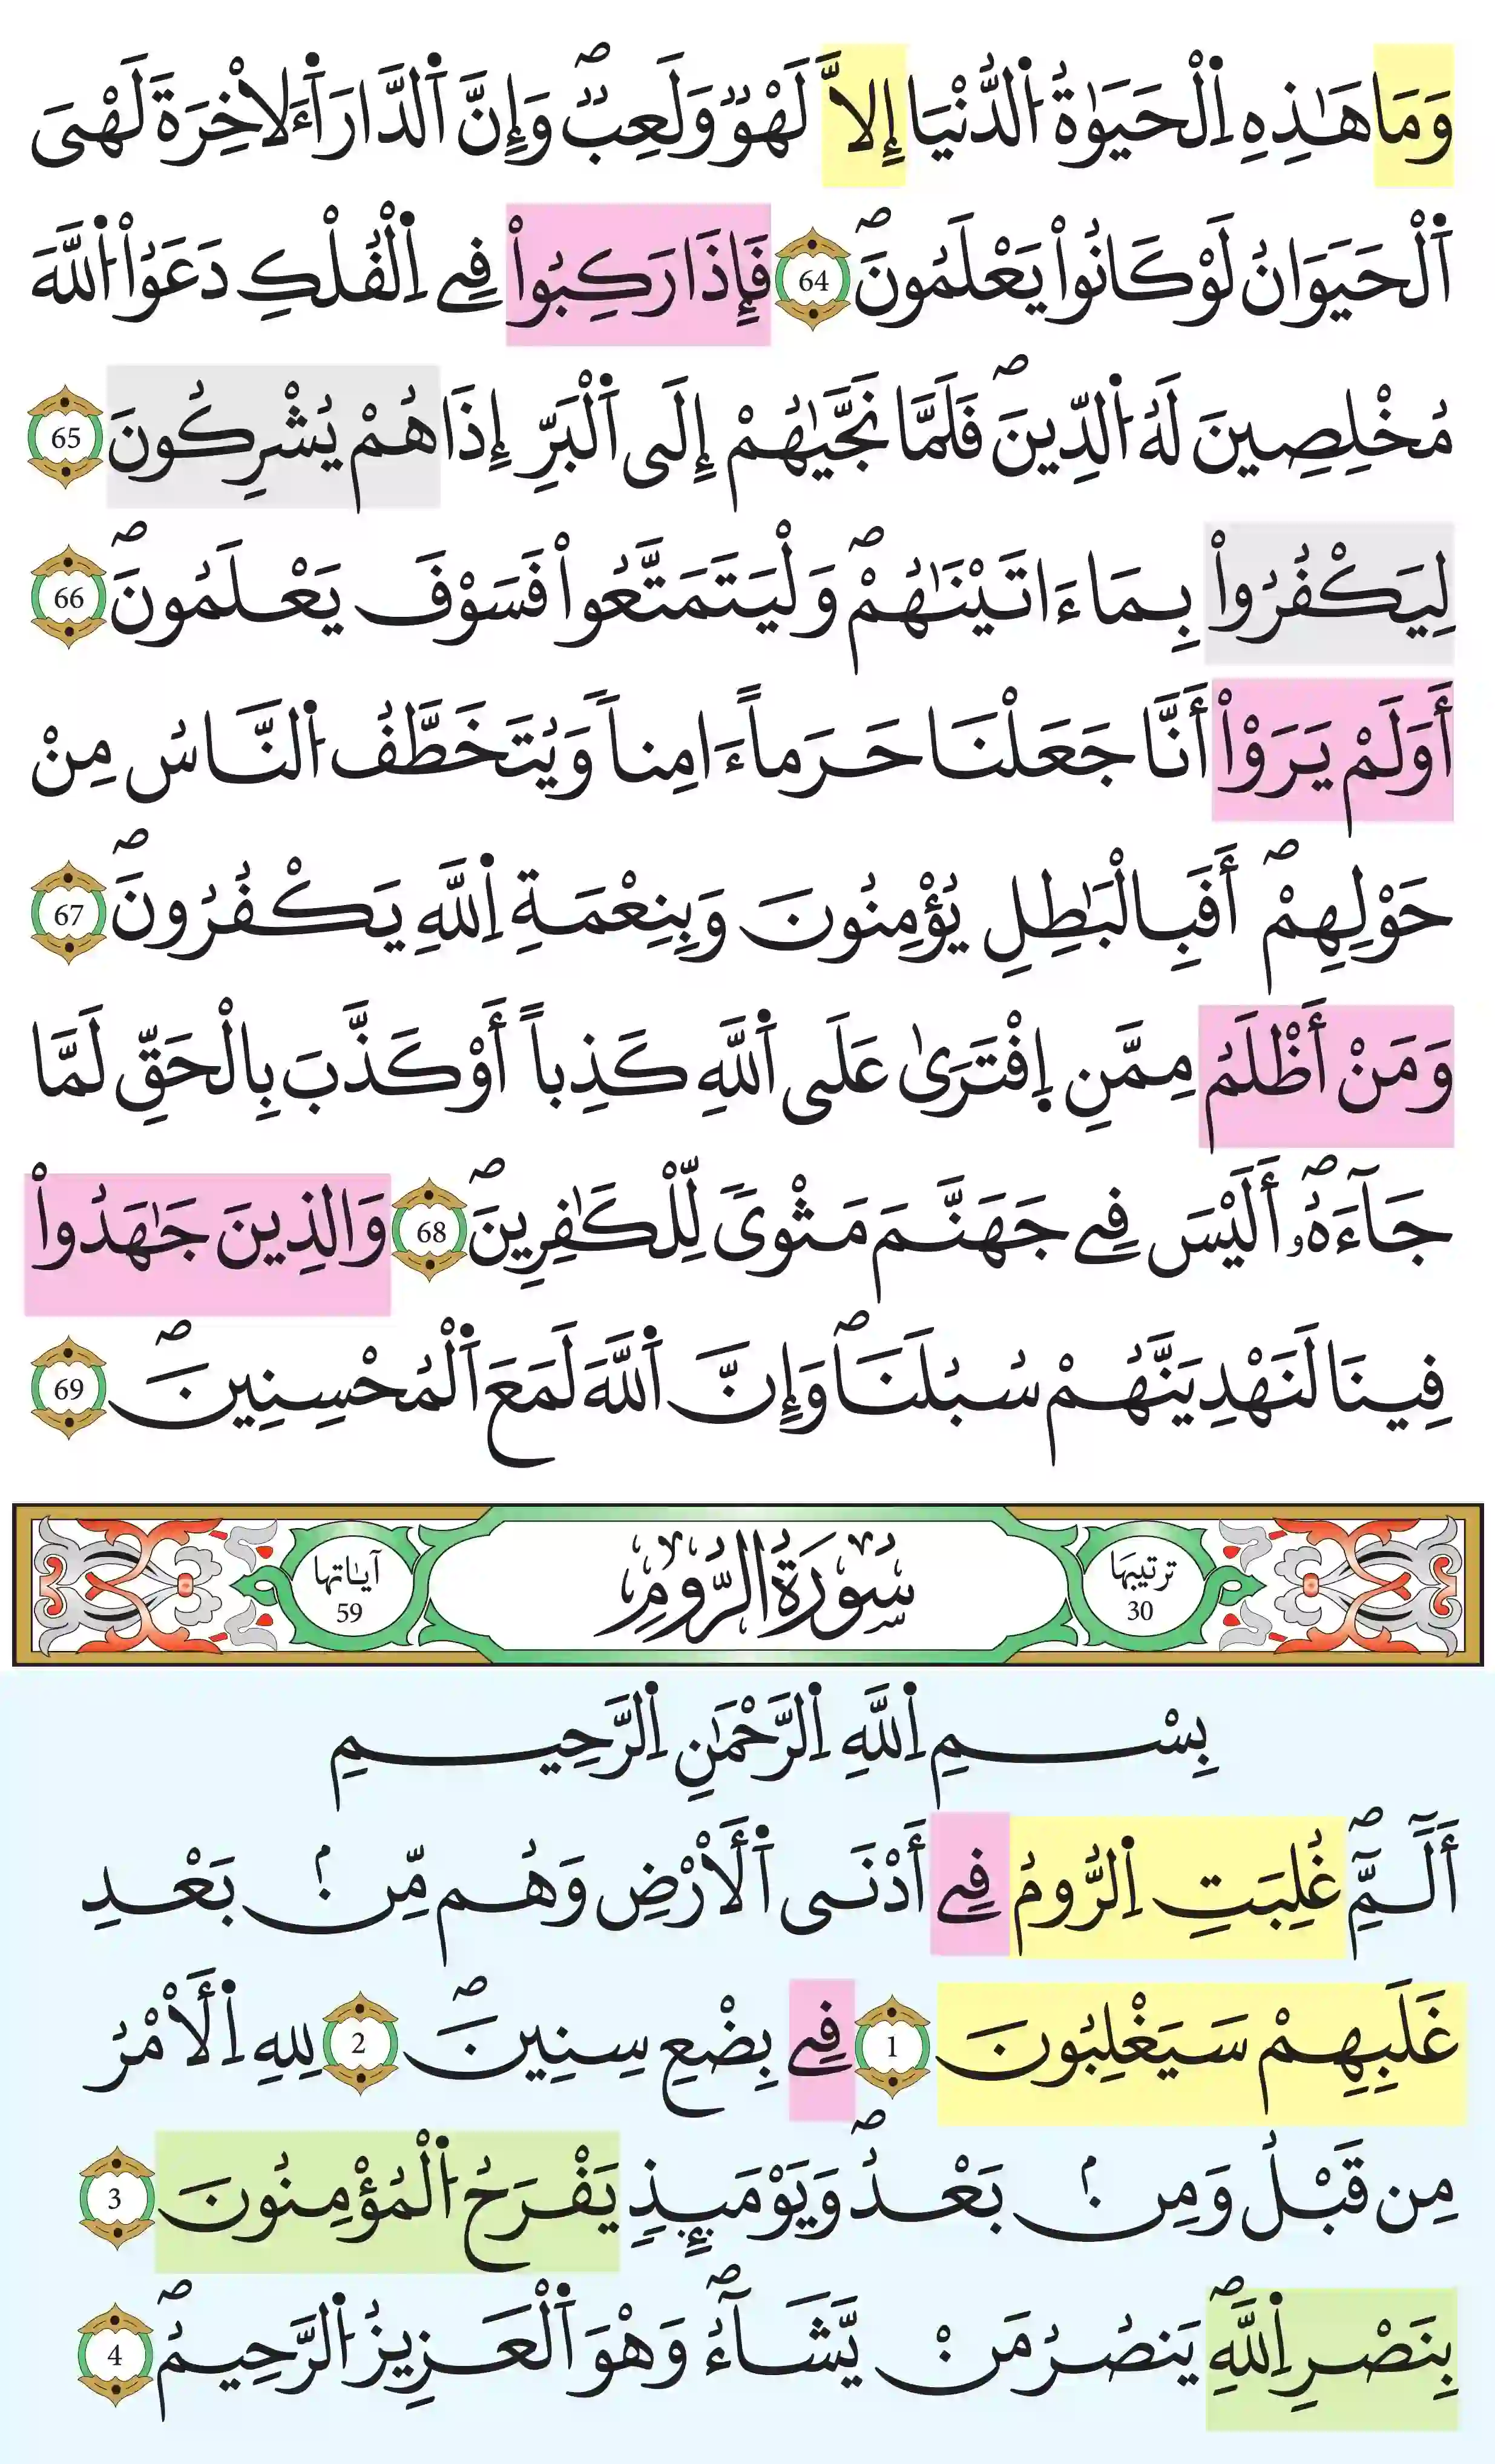 وَمَا هَٰذِهِ اِ۬لْحَيَوٰةُ اُ۬لدُّنْيَا إِلَّا لَهْوٞ وَلَعِبٞۖ وَإِنَّ اَ۬لدَّارَ اَ۬لَاخِرَةَ لَهْىَ
اَ۬لْحَيَوَانُ لَوْ كَانُواْ يَعْلَمُونَۖ 64 فَإِذَا رَكِبُواْ فِے اِ۬لْفُلْكِ دَعَوُاْ اُ۬للَّهَ
مُخْلِصِينَ لَهُ اُ۬لدِّينَۖ فَلَمَّا نَجَّيٰهُمْ إِلَى اَ۬لْبَرِّ إِذَا هُمْ يُشْرِكُونَ 65
لِيَكْفُرُواْ بِمَا ءَاتَيْنَٰهُمْۖ وَلْيَتَمَتَّعُواْ فَسَوْفَ يَعْلَمُونَۖ 66
أَوَلَمْ يَرَوْاْ أَنَّا جَعَلْنَا حَرَماً ءَامِناٗ وَيُتَخَطَّفُ اُ۬لنَّاسُ مِنْ
حَوْلِهِمْۖ أَفَبِالْبَٰطِلِ يُؤْمِنُونَ وَبِنِعْمَةِ اِ۬للَّهِ يَكْفُرُونَۖ 67
وَمَنْ أَظْلَمُ مِمَّنِ اِ۪فْتَرَىٰ عَلَى اَ۬للَّهِ كَذِباً أَوْ كَذَّبَ بِالْحَقِّ لَمَّا
جَآءَهُۥۖ أَلَيْسَ فِے جَهَنَّمَ مَثْوىٗ لِّلْكَٰفِرِينَۖ 68 وَالذِينَ جَٰهَدُواْ
فِينَا لَنَهْدِيَنَّهُمْ سُبُلَنَاۖ وَإِنَّ اَ۬للَّهَ لَمَعَ اَ۬لْمُحْسِنِينَۖ 69
ترتيبها 30 سُورَةُ الرُّومِ آياتها 59
بِسْمِ اِ۬للَّهِ اِ۬لرَّحْمَٰنِ اِ۬لرَّحِيمِ
أَلَٓمِّٓۖ غُلِبَتِ اِ۬لرُّومُ فِے أَدْنَى اَ۬لْأَرْضِ وَهُم مِّنۢ بَعْدِ
غَلَبِهِمْ سَيَغْلِبُونَ 1 فِے بِضْعِ سِنِينَۖ 2 لِلهِ اِ۬لْأَمْرُ
مِن قَبْلُ وَمِنۢ بَعْدُۖ وَيَوْمَئِذٖ يَفْرَحُ اُ۬لْمُؤْمِنُونَ 3
بِنَصْرِ اِ۬للَّهِۖ يَنصُرُ مَنْ يَّشَآءُۖ وَهْوَ اَ۬لْعَزِيزُ اُ۬لرَّحِيمُۖ 4